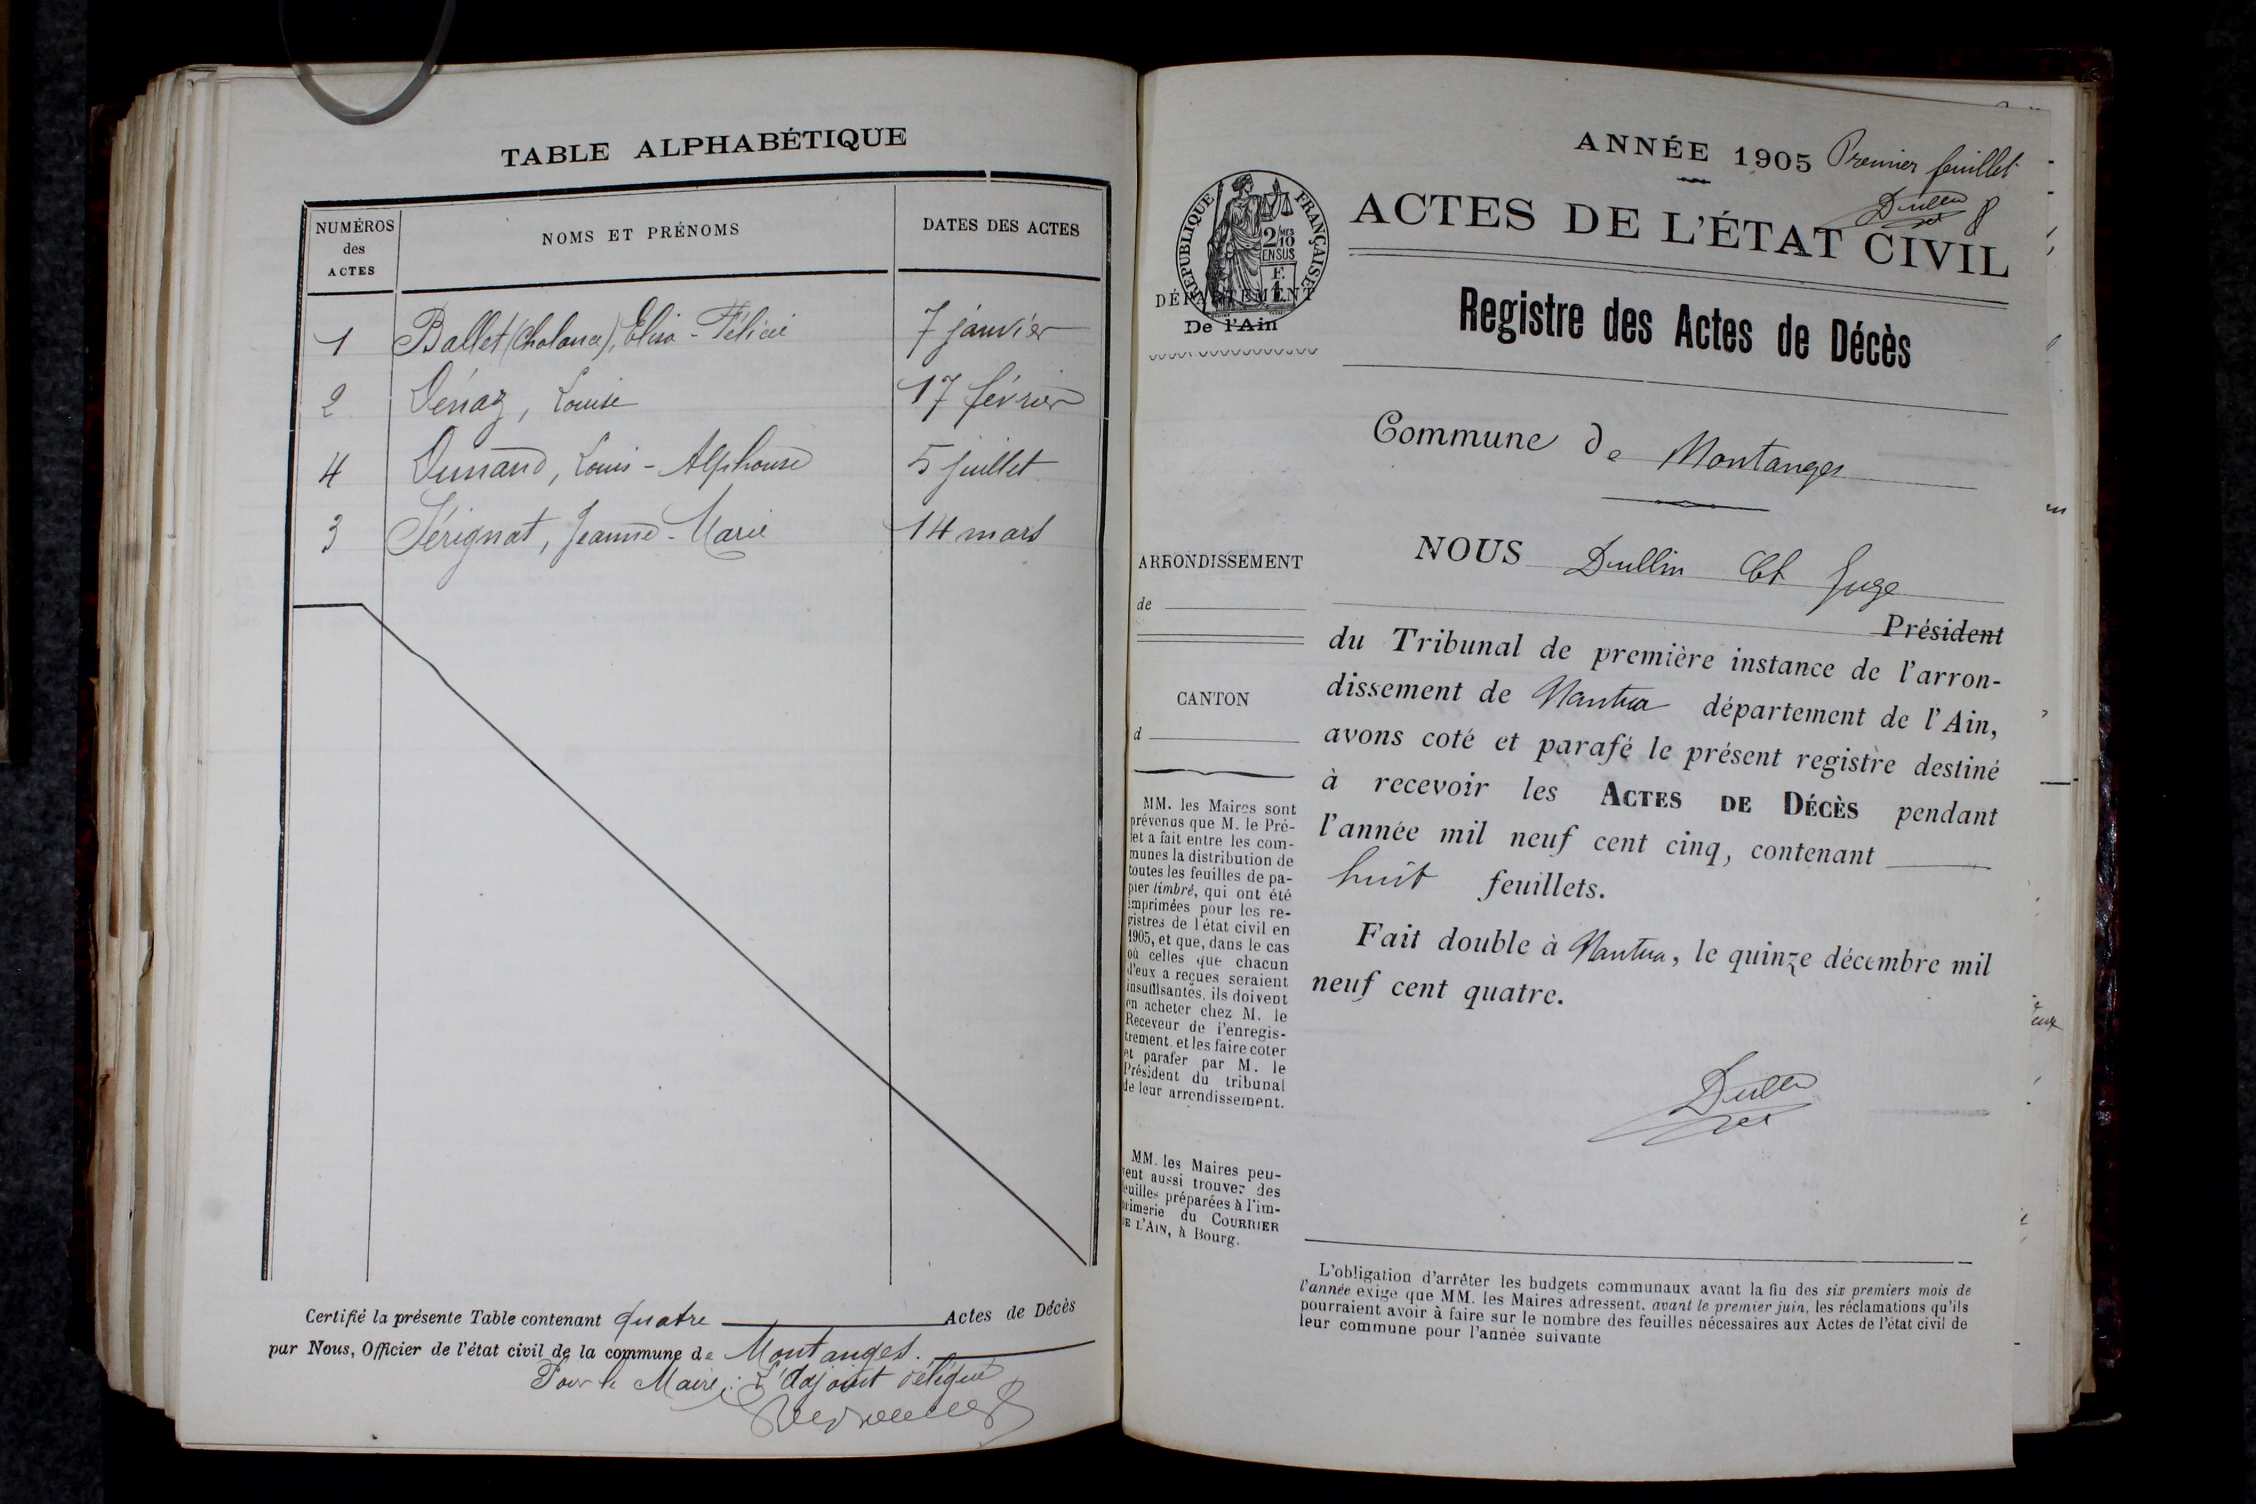 TABLE ALPHABÉTIQUE
NUMÉROS
des
ACTES
NOMS ET PRÉNOMS
DATES DES ACTES
1 Ballet (Cholana), Elisa-Félicie 7 janvier
2 Dénaz, Louise 17 février
4 Dunand, Louis-Alphonse 5 juillet
3 Sérignat, Jeanne-Marie 14 mars
Certifié la présente Table contenant quatre Actes de Décès
par Nous, Officier de l'état civil de la commune de Montanges.
Pour le Maire: L'adjoint délégué
ANNÉE 1905 Premier feuillet
Dullin
8
ACTES DE L'ÉTAT CIVIL
RÉPUBLIQUE FRANÇAISE
2/10 MES
EN SUS
DÉPARTEMENT
De l'Ain
Registre des Actes de Décès
Commune de Montanges
ARRONDISSEMENT
de
CANTON
d
MM. les Maires sont
prévenus que M. le Pré-
fet a fait entre les com-
munes la distribution de
toutes les feuilles de pa-
pier timbré, qui ont été
imprimées pour les re-
gistres de l'état civil en
1905, et que, dans le cas
où celles que chacun
d'eux a reçues seraient
insuffisantes, ils doivent
en acheter chez M. le
Receveur de l'enregis-
trement, et les faire coter
et parafer par M. le
Président du tribunal
de leur arrondissement.
MM. les Maires peu-
vent aussi trouver des
feuilles préparées à l'im-
primerie du COURRIER
DE L'AIN, à Bourg.
NOUS Dullin Ch Juge
Président
du Tribunal de première instance de l'arron-
dissement de Nantua département de l'Ain,
avons coté et parafé le présent registre destiné
à recevoir les ACTES DE DÉCÈS pendant
l'année mil neuf cent cinq, contenant
huit feuillets.
Fait double à Nantua, le quinze décembre mil
neuf cent quatre.
Dullin
L'obligation d'arrêter les budgets communaux avant la fin des six premiers mois de
l'année exige que MM. les Maires adressent, avant le premier juin, les réclamations qu'ils
pourraient avoir à faire sur le nombre des feuilles nécessaires aux Actes de l'état civil de
leur commune pour l'année suivante